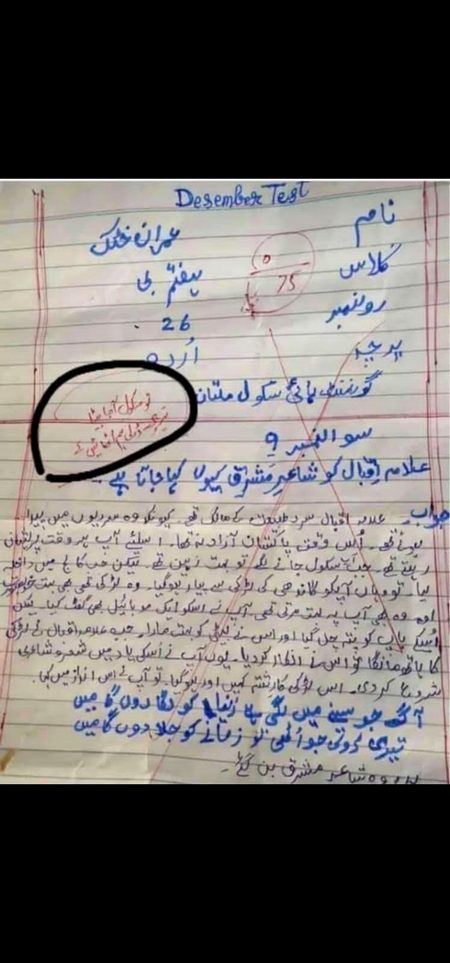 Desember Test
نام عمران خٹک
کلاس ہفتم بی
رولنمبر 26
0
75
پرچہ اُردو
گورنمنٹ ہائی سکول ملتان
تو سکول آجا بیٹا
سوالنمبر 9
علامہ اقبال کو شاعرِ مشرق کیوں کہا جاتا ہے
جواب علامہ اقبال سرد طبیعت کے مالک تھے کیونکہ وہ سردیوں میں پیدا
ہوئے تھے۔ اُس وقت پاکستان آزاد نہ تھا۔ اسلئے آپ ہر وقت پریشان
رہتے تھے۔ جب سکول جانے لگے تو بہت ذہین تھے۔ لیکن جب کالج میں داخلہ
لیا۔ تو وہاں آپکو گاندھی کی لڑکی سے پیار ہوگیا۔ وہ لڑکی بھی بہت خوبصورت
وہ بھی آپ پہ بہت مرتی تھی آپ نے اسکو ایک موبائیل بھی گفٹ کیا۔ لیکن
اُسکے باپ کو پتہ چل گیا اور اس نے لڑکی کو بہت مارا۔ جب علامہ اقبال نے لڑکی
کا ہاتھ مانگا تو اس نے انکار کردیا۔ یوں آپ نے اُسکی یاد میں شعر و شاعری
شروع کردی۔ اس لڑکی کا رشتہ کہیں اور ہوگیا۔ تو آپ نے اس انداز میں کہا
آگ جو سینے میں لگی ہے زنیا کو دکا دوں گا میں
تیری ڈولی جو اُٹھی تو زمانے کو جلا دوں گا میں
وہ شاعر مشرق بن گئے۔